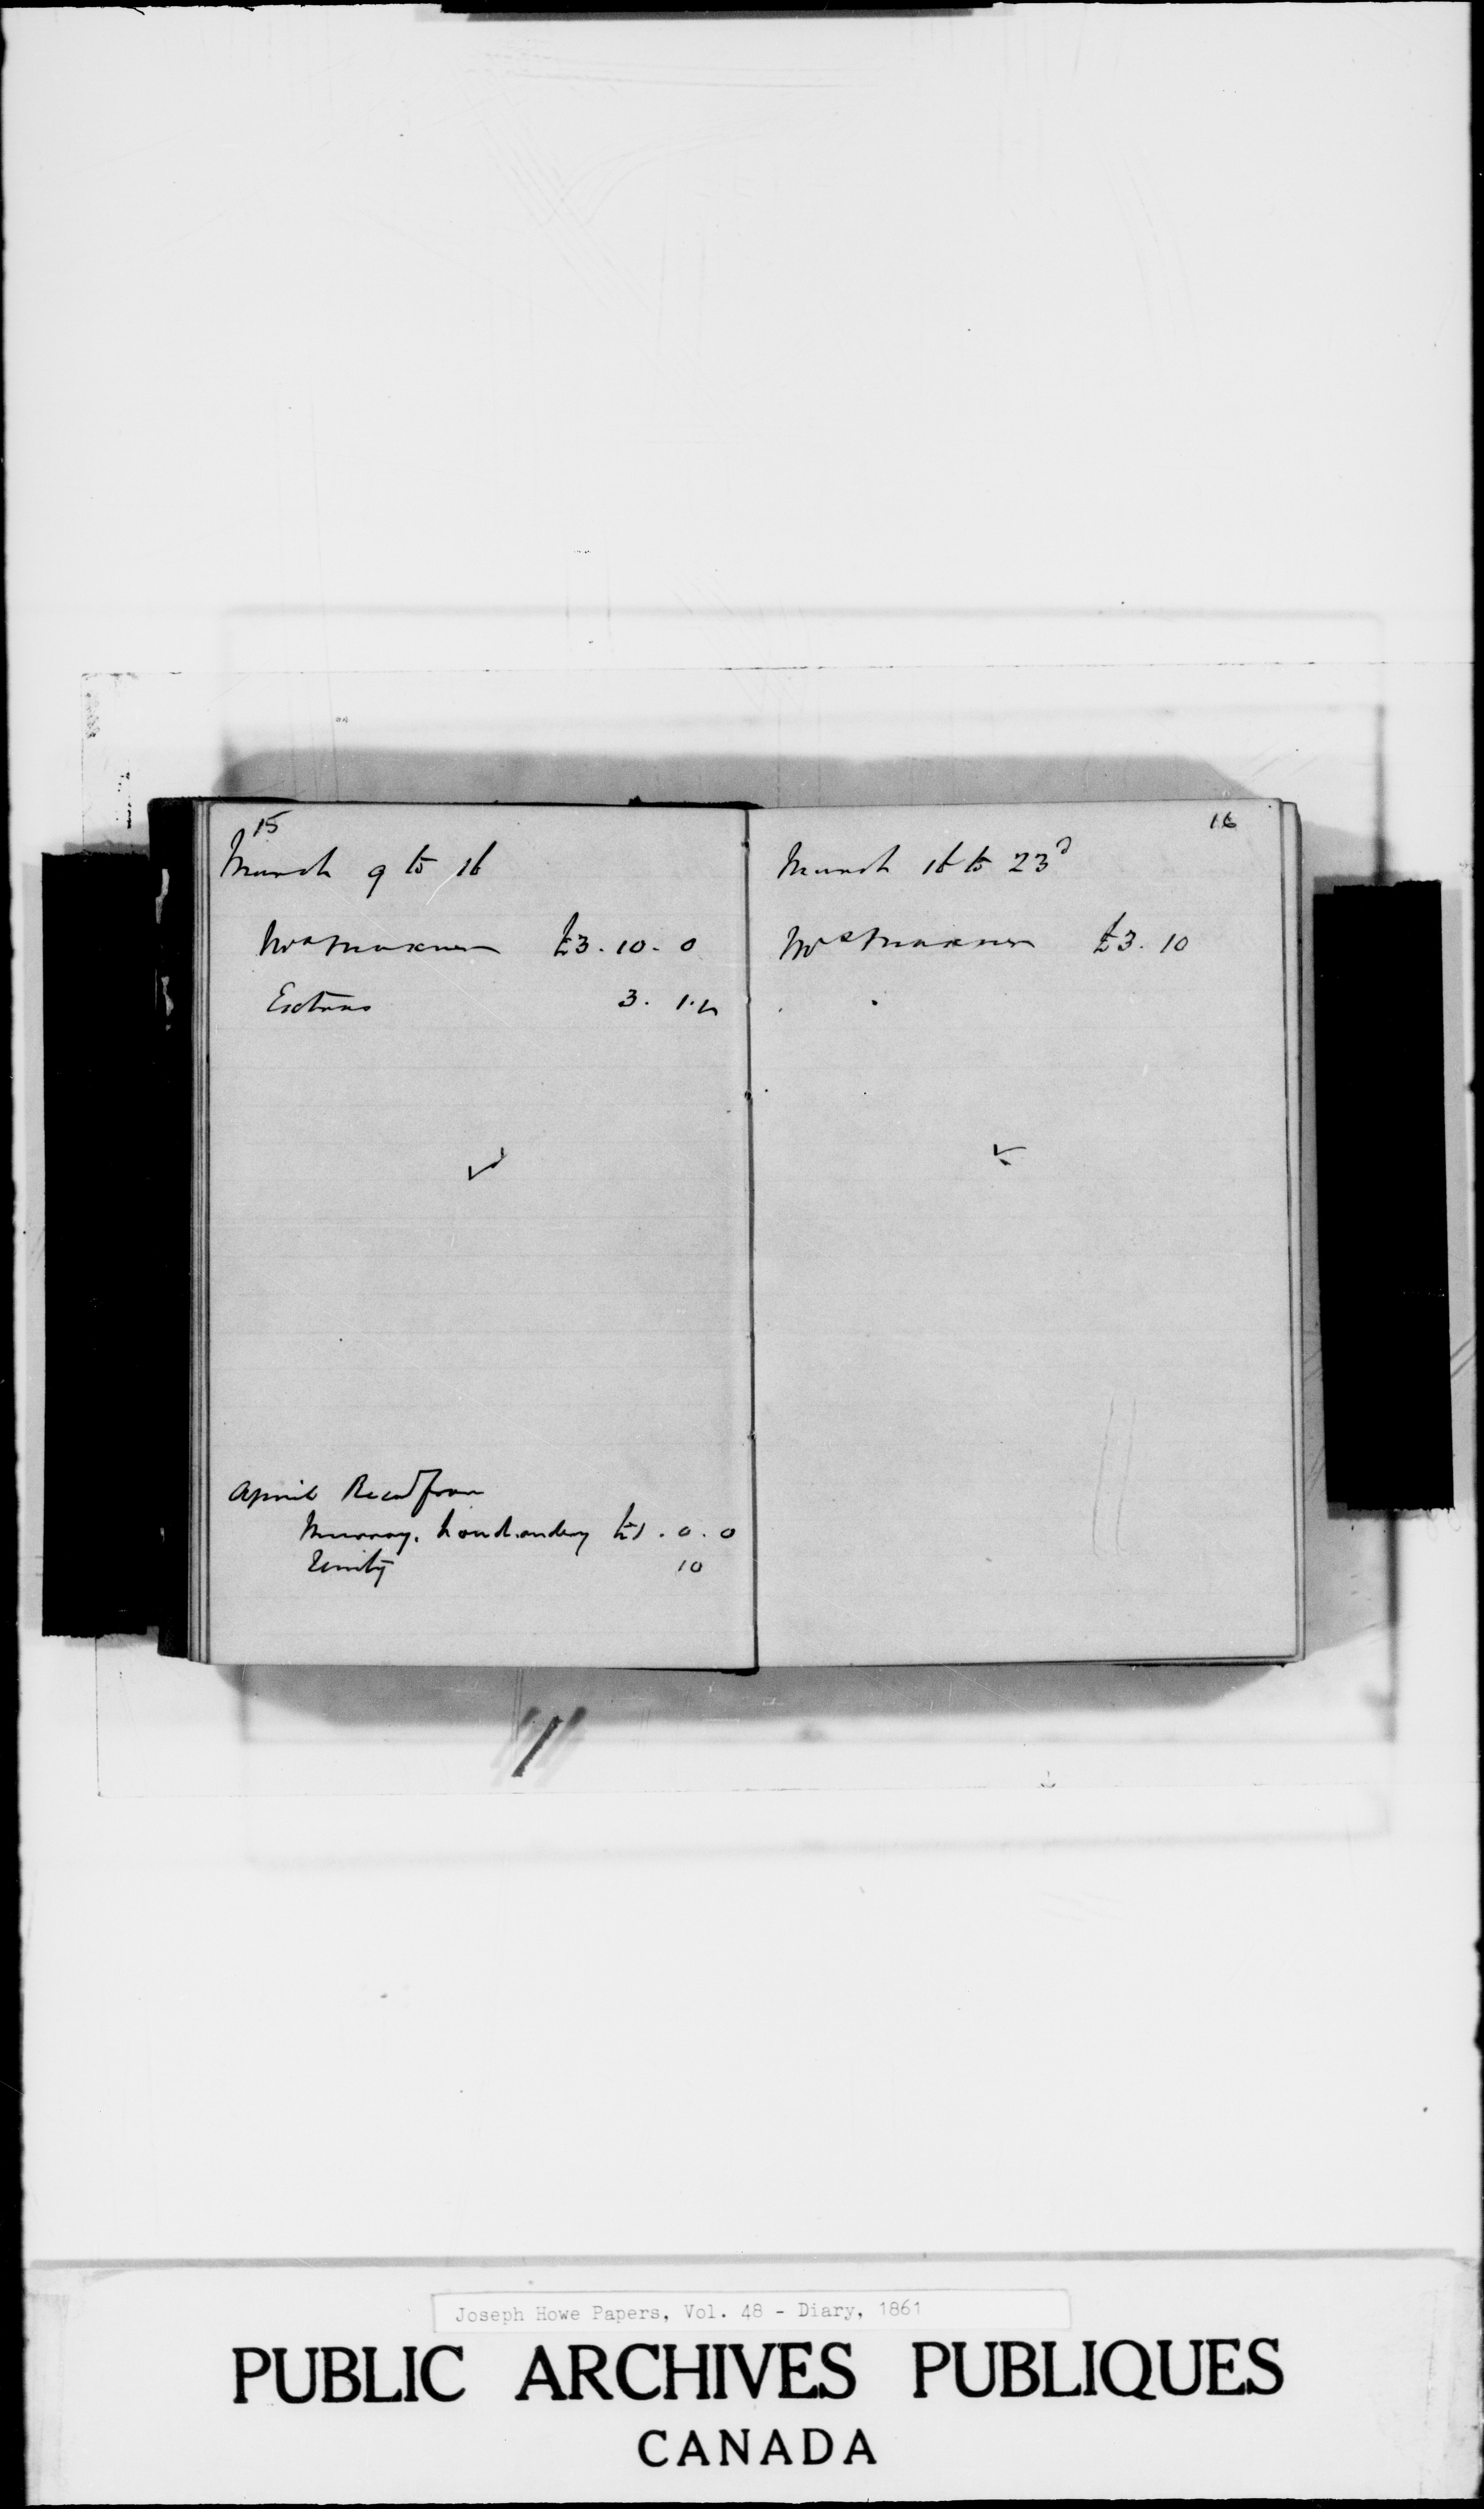 15
March 9 to 16
£3. 10. 0
Extras 3. 1.
April Recd from
Murray, Londonderry £1. 0. 0
Emily 10
16
March 16 to 23d
£3. 10
Joseph Howe Papers, Vol. 48 - Diary, 1861
PUBLIC ARCHIVES PUBLIQUES
CANADA